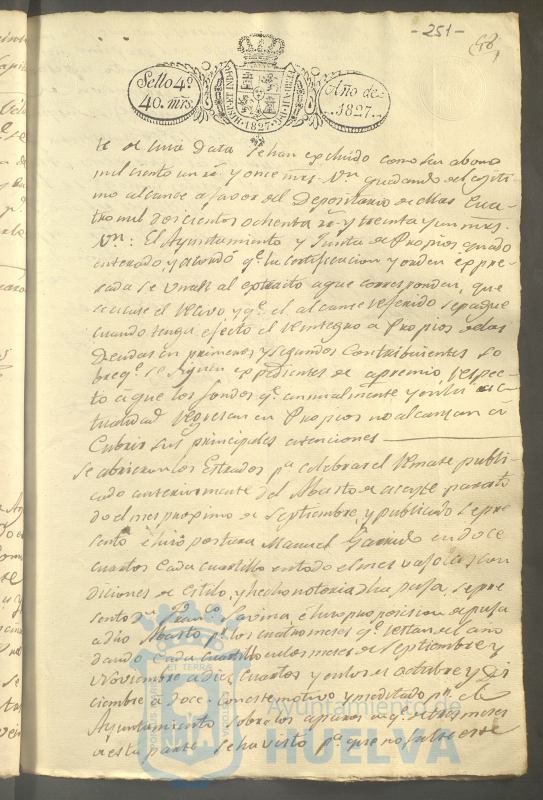 -251-
Sello 4º
40. mrs.
HISP. ET IND. R
1827
Año de
1827.
te de una data se han excluido como su abono
mil ciento un rs. y once mrs. vn quedando el lejiti-
mo alcance a favor del Depositario de ellas cua-
tro mil doscientos ochenta rs. y treinta y un mrs.
vn: El Ayuntamiento y Junta de Propios quedo
enterado, y acordó qe. la certificacion y orden expre-
sada se unan al extracto a que corresponden, que
se el y qe. el alcance referido se pague
cuando tenga efecto el reintegro a Propios de las
Deudas en primeros y segundos Contribuientes so
bre qe. se siguen expedientes de apremio, respec-
to a que los fondos qe. anualmente y en la ac-
tualidad ingresan en Propios no alcanzan a
cubrir sus principales atenciones
Se abrieron los Estrados pa. celebrar el remate publi-
cado anteriormente del Abasto de aceyte para to
do el mes proximo de Septiembre, y publicado se pre-
sentó e hizo postura Manuel Garrido en doce
cuartos cada cuartillo en todo el mes bajo las con
diciones de estilo, y hecho notoria dha puja, se pre-
sentó Dn. Franco. Savina, e hizo proposicion de puja
a dho Abasto pr. los cuatro meses qe. restan del año
dando cada cuartillo en los meses de Septiembre y
Noviembre a diez cuartos y en los de octubre y Di
ciembre a doce. Con este motivo y meditado pr. el
Ayuntamiento sobre los apuros en qe. de tres meses
a esta parte se ha visto pa. que no faltase
Ayuntamiento de
HUELVA